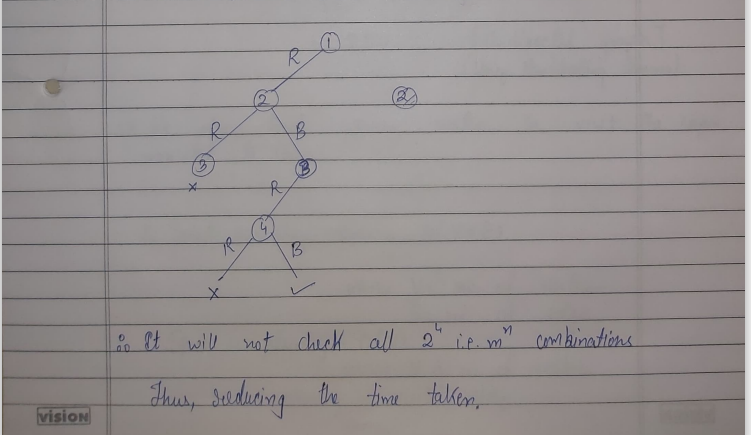 1
R
2
2
R
B
3
3
x
R
4
R
B
x ✓
∴ It will not check all 2⁴ i.e. mⁿ combinations
Thus, reducing the time taken.
vision